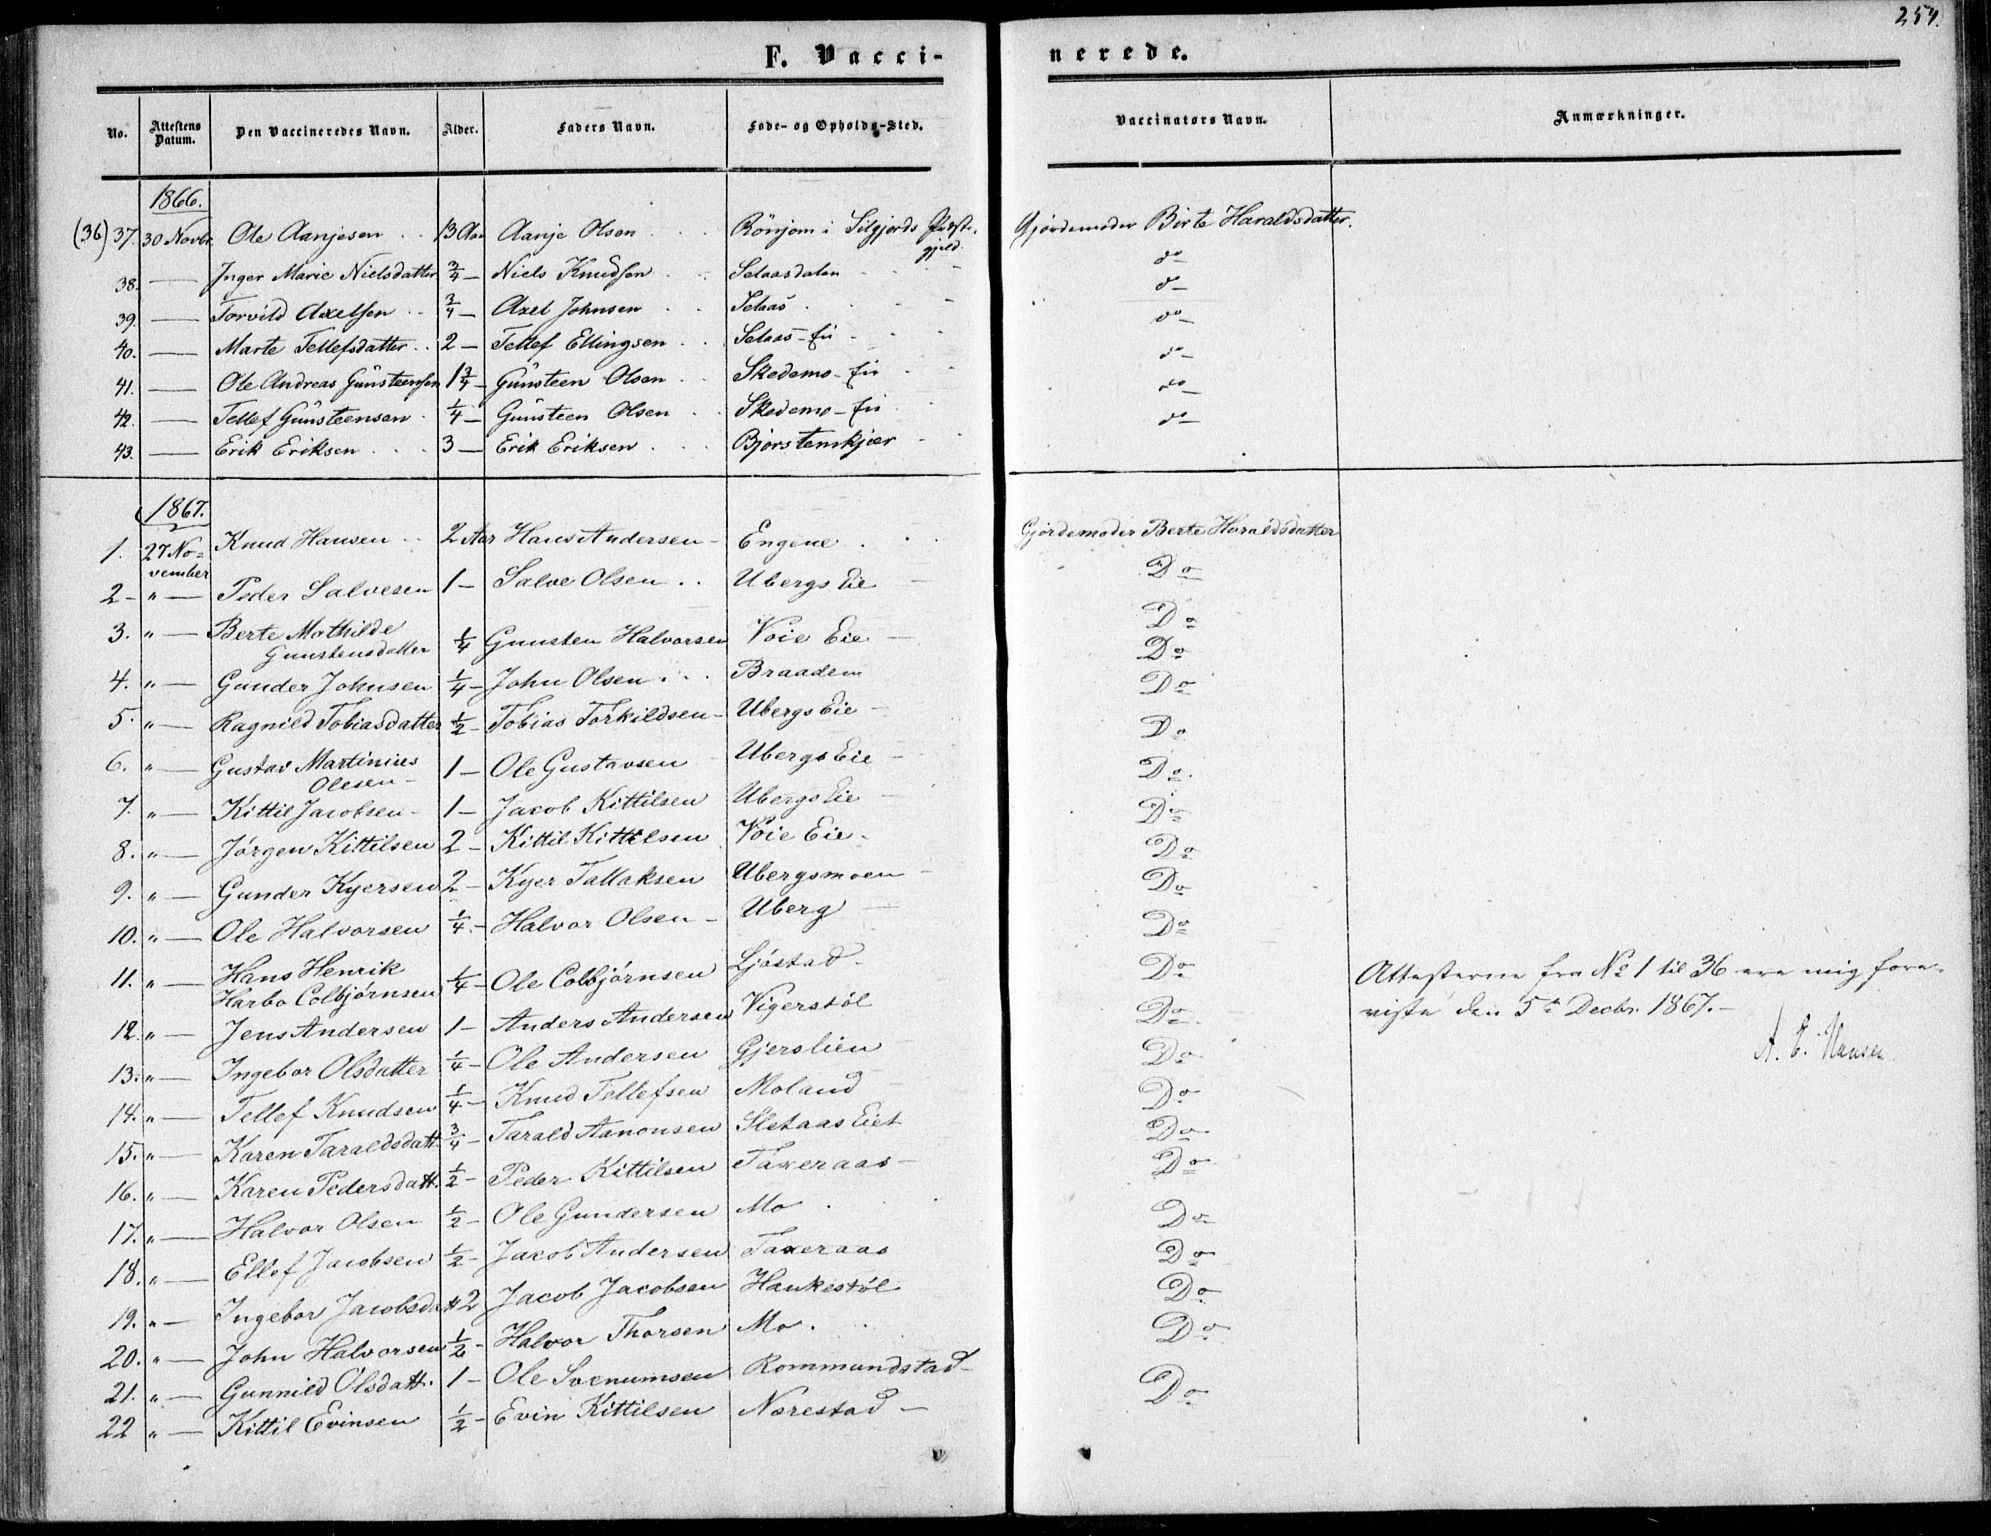 254.
F. Vacci-
nerede.
No. Attestens Datum. Den Vaccineredes Navn. Alder. Faders Navn. Føde- og Opholds-Sted. Vaccinators Navn. Anmærkninger.
1866.
(36) 37. 30 Novbr. Ole Aanjesen 13 Aar Aanje Olsen Rönjom i Silgjords Præstegjeld. Gjordemoder Birte Haraldsdatter.
38. — Inger Marie Nielsdatter 3/4 — Niels Knudsen Selaasdalen do
39. — Torvild Axelsen 3/4 — Axel Johnsen Selaas do
40. — Marte Tellefsdatter 2 — Tellef Ellingsen Selaas-Eie do
41. — Ole Andreas Günsteensen 1 3/4 — Günsteen Olsen Skedemo-Eie do
42. — Tellef Günsteensen 1/4 — Günsteen Olsen Skedemo-Eie do
43. — Erik Eriksen 3 — Erik Eriksen Bjorstenskjær do
1867.
1. 27 November Knud Hansen 2 Aar Hans Andersen Engene Gjordemoder Berte Haraldsdatter
2 - " — Peder Salvesen 1 — Salve Olsen Ubergs Eie Do
3. " — Berte Mathilde Gunstensdatter 1/4 Gunsten Halvorsen Voie Eie Do
4. " — Gunder Johnsen 1/4 — John Olsen Braadem Do
5. " — Ragnild Tobiasdatter 1/2 — Tobias Torkildsen Ubergs Eie Do
6. " — Gustav Martinius Olesen 1 — Ole Gustavsen Ubergs Eie Do
7. " — Kittil Jacobsen 1 — Jacob Kittilsen Ubergs Eie Do.
8. " — Jørgen Kittilsen 2 — Kittil Kittilsen Voie Eie Do
9. " — Gunder Kyersen 2 — Kyer Tallaksen Ubergsmoen Do
10. " — Ole Halvorsen 1/4 — Halvor Olsen Uberg Do
11. " — Hans Henrik Harbo Colbjørnsen 1/4 — Ole Colbjørnsen Ljöstad Do
12. " — Jens Andersen 1 — Anders Andersen Vigerstöl Do
13. " — Ingebor Olsdatter 1/4 — Ole Andersen Gjerslien Do
14. " — Tellef Knudsen 1/4 — Knud Tellefsen Moland Do
15. " — Karen Taraldsdatt. 3/4 — Tarald Aanonsen Sletaas Eiet Do
16. " — Karen Pedersdatt. 1/2 — Peder Kittilsen Taxeraas Do
17. " — Halvor Olsen 1/2 — Ole Gundersen Mo Do
18. " — Ellef Jacobsen 1/2 — Jacob Andersen Taxeraas Do
19. " — Ingebor Jacobsdatt 2 Jacob Jacobsen Haukestöl Do
20. " — John Halvorsen 1/2 — Halvor Thorsen Mo. Do
21. " — Gunnild Olsdatt. 1 — Ole Rommundstad Do
22 " — Kittil Evinsen 1/2 — Evin Kittilsen Norestad Do
Attesterne fra No 1 til 36 ere mig fore-
viste den 5te Decbr. 1867.
A. E. Hansen.